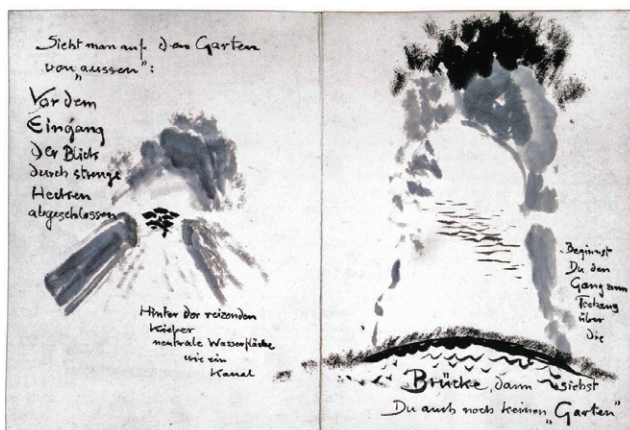 Sieht man auf den Garten
von "aussen":
Vor dem
Eingang
der Blick
durch strenge
Hecken
abgeschlossen
Hinter der reizenden
Kiefer
neutrale Wasserfläche
wie ein
Kanal
Beginnst
Du den
Gang am
über
die
Brücke, dann siehst
Du auch noch keinen "Garten"